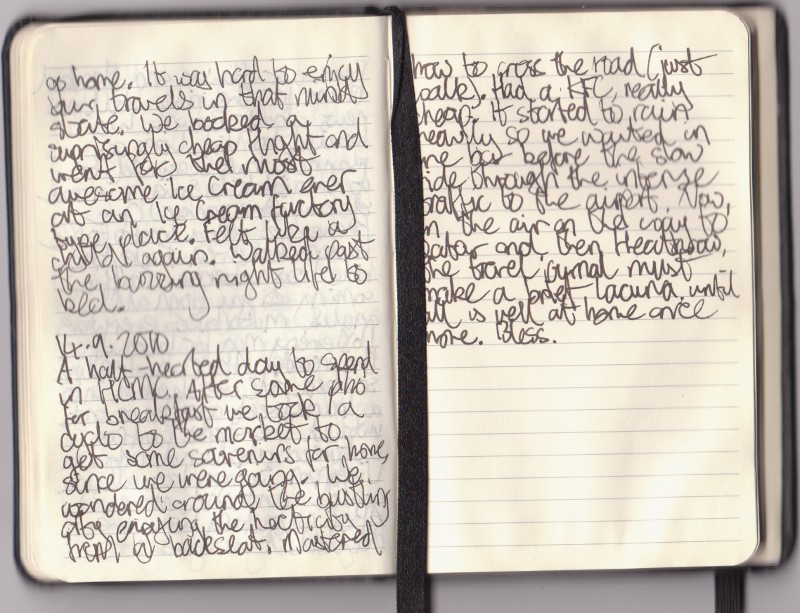 go home. It was hard to enjoy
your travels in that mind
state. We booked a
surprisingly cheap flight and
went for the most
awesome Ice Cream ever
at an Ice Cream factory
type place. Felt like a
child again. Walked past
the buzzing night life to
bed.
14.9.2010
A half-hearted day to spend
in HCMC. After some pho
for breakfast we took a
cyclo to the market to
get some souvenirs for home,
since we were going. We
wandered around the bustling
enjoying the hecticity
from a backseat. Mastered
how to cross the road (just
walk). Had a KFC, really
cheap. It started to rain
heavily so we waited in
the bar before the slow
ride through the intense
traffic to the airport. Now,
in the air on the way to
Qatar and then Heathrow,
the travel journal must
make a brief lacuna until
all is well at home once
more. Bless.